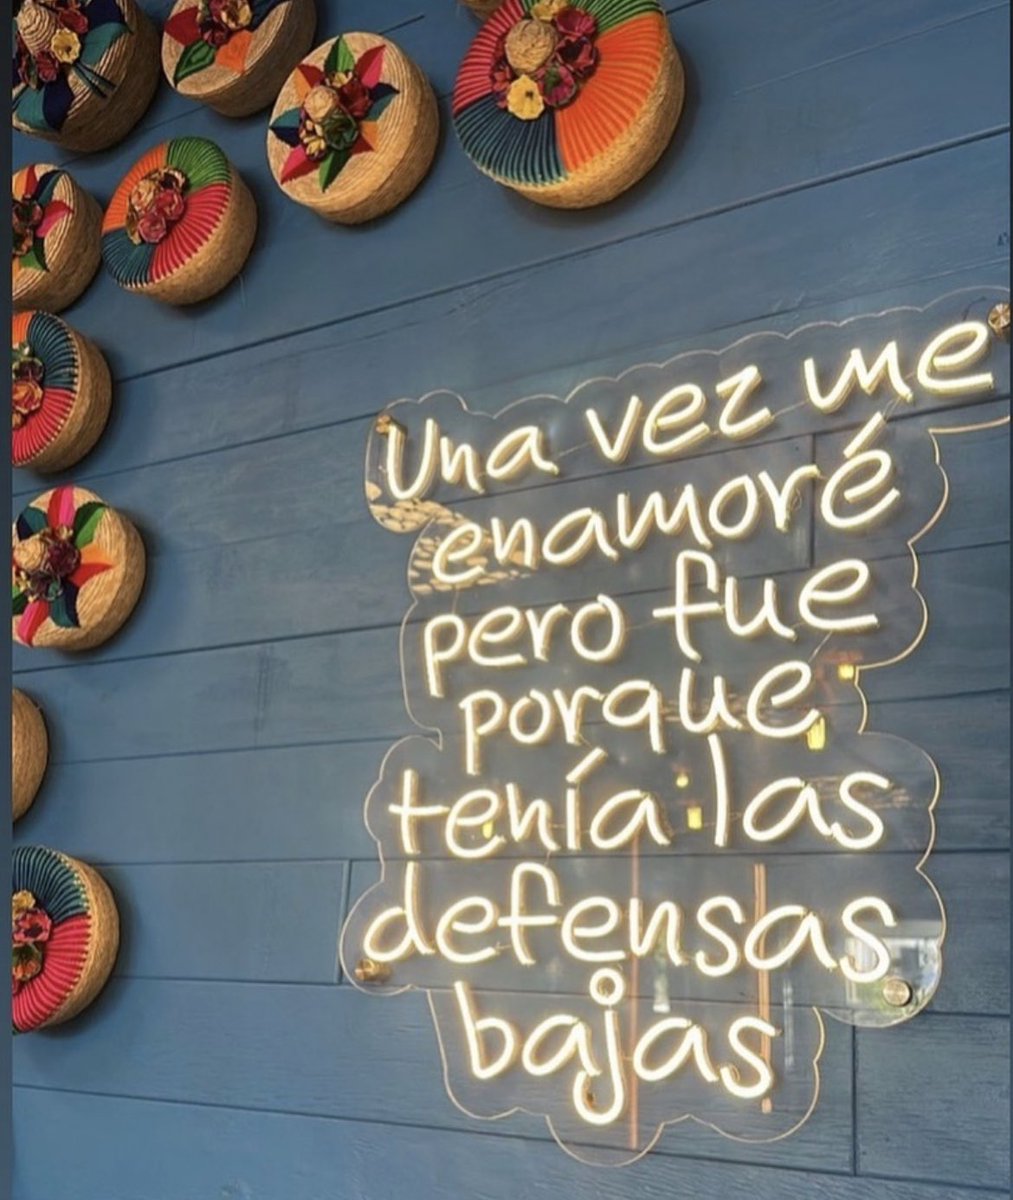 Una vez me
enamoré
pero fue
porque
tenía las
defensas
bajas